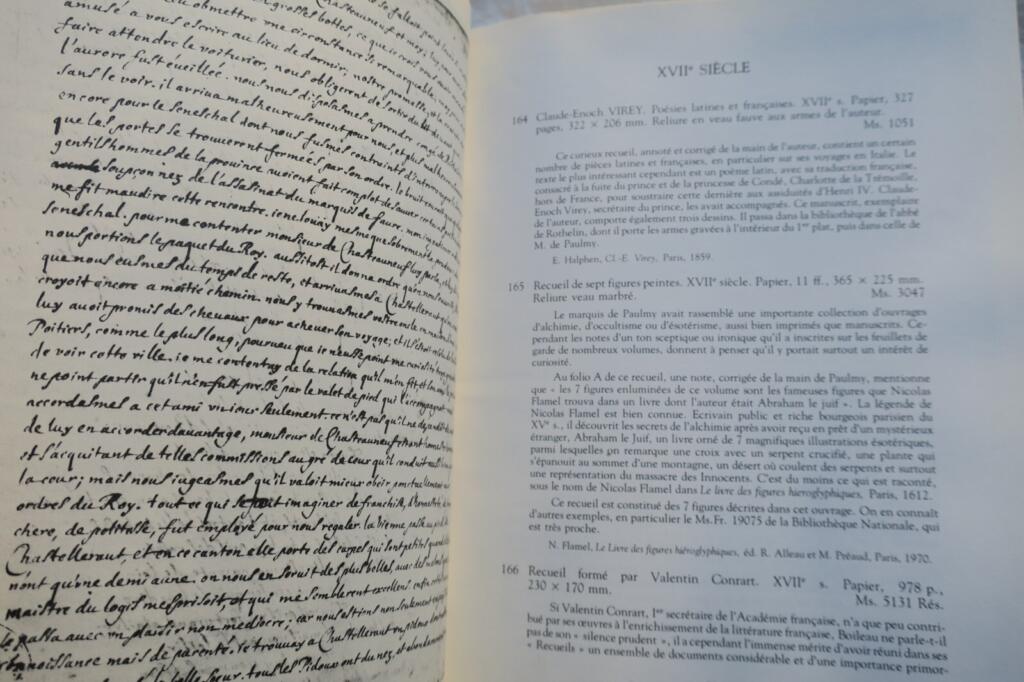 amusé a vous escrire au lieu de dormir; nostre promesse
faire attendre le voiturier, nous obligerent de sortir du lit
l'aurore fust éveillée. nous nous disposasmes a prendre congé de
sans le voir. il arriva malheureusement pour nous, et plus
encore pour le seneschal dont nous fusmes contraints d'interrompre
que les portes se trouverent fermées par son ordre. le bruit
gentilshommes de la province avoient fait complot de sauver
soupçonnez de l'assasinat du marquis de faure. mon
me fit maudire cette rencontre. ie ne louay mesme que sobrement
seneschal. pour me contenter monsieur de Chasteauneuf luy parla,
nous portions le paquet du Roy. aussitost il donna ordre qu'on nous
que nous eusmes du temps de reste, et arrivasmes a Chastelleraut
croyoit encore a moitié chemin. nous y trouvasmes vostre oncle
luy avoit promis des chevaux pour achever son voyage; et il s'estoit
Poitiers, comme le plus long, pourveu que ie n'eusse point
de voir cette ville. ie me contentay de la relation qu'il m'en fit, et
ne point partir qu'il n'en fust pressé par le valet de pied qui l'accompagnoit
accordasmes a cet ami un iour seulement. ce n'est pas qu'il ne
de luy en accorder davantage, monsieur de Chasteauneuf étant
et s'acquitant de telles commissions au gré de ceux qu'il conduit
la cour; mais nous iugeasmes qu'il valoit mieux obeir ponctuellement
ordres du Roy. tout ce qui se peut imaginer de franchise,
chere, de politesse, fut employé pour nous regaler. la Vienne passe au
Chastelleraut, et en ce canton elle porte des carpes qui sont petites quand
n'ont qu'une demi aune. on nous en servit des plus belles, avec des
maistre du logis mesprisoit, et qui me semblerent excellens. enfin
se passa avec un plaisir non mediocre; car nous estions non seulement
connoissance mais de parenté. ie trouvay a Chastelleraut un
tous les Pidoux ont du nez, et abondamment
XVIIᵉ SIÈCLE
164 Claude-Enoch VIREY. Poésies latines et françaises. XVIIᵉ s. Papier, 327
pages, 322 × 206 mm. Reliure en veau fauve aux armes de l'auteur.
Ms. 1051
Ce curieux recueil, annoté et corrigé de la main de l'auteur, contient un certain
nombre de pièces latines et françaises, en particulier sur ses voyages en Italie. Le
texte le plus intéressant cependant est un poème latin, avec sa traduction française,
consacré à la fuite du prince et de la princesse de Condé, Charlotte de la Trémoille,
hors de France, pour soustraire cette dernière aux assiduités d'Henri IV. Claude-
Enoch Virey, secrétaire du prince, les avait accompagnés. Ce manuscrit, exemplaire
de l'auteur, comporte également trois dessins. Il passa dans la bibliothèque de l'abbé
de Rothelin, dont il porte les armes gravées à l'intérieur du 1ᵉʳ plat, puis dans celle de
M. de Paulmy.
E. Halphen, Cl.-E. Virey, Paris, 1859.
165 Recueil de sept figures peintes. XVIIᵉ siècle. Papier, 11 ff., 365 × 225 mm.
Reliure veau marbré. Ms. 3047
Le marquis de Paulmy avait rassemblé une importante collection d'ouvrages
d'alchimie, d'occultisme ou d'ésotérisme, aussi bien imprimés que manuscrits. Ce-
pendant les notes d'un ton sceptique ou ironique qu'il a inscrites sur les feuillets de
garde de nombreux volumes, donnent à penser qu'il y portait surtout un intérêt de
curiosité.
Au folio A de ce recueil, une note, corrigée de la main de Paulmy, mentionne
que « les 7 figures enluminées de ce volume sont les fameuses figures que Nicolas
Flamel trouva dans un livre dont l'auteur était Abraham le juif ». La légende de
Nicolas Flamel est bien connue. Ecrivain public et riche bourgeois parisien du
XVᵉ s., il découvrit les secrets de l'alchimie après avoir reçu en prêt d'un mystérieux
étranger, Abraham le Juif, un livre orné de 7 magnifiques illustrations ésotériques,
parmi lesquelles on remarque une croix avec un serpent crucifié, une plante qui
s'épanouit au sommet d'une montagne, un désert où coulent des serpents et surtout
une représentation du massacre des Innocents. C'est du moins ce qui est raconté,
sous le nom de Nicolas Flamel dans Le livre des figures hieroglyphiques, Paris, 1612.
Ce recueil est constitué des 7 figures décrites dans cet ouvrage. On en connaît
d'autres exemples, en particulier le Ms.Fr. 19075 de la Bibliothèque Nationale, qui
est très proche.
N. Flamel, Le Livre des figures hiéroglyphiques, éd. R. Alleau et M. Préaud, Paris, 1970.
166 Recueil formé par Valentin Conrart. XVIIᵉ s. Papier, 978 p.,
230 × 170 mm. Ms. 5131 Rés.
Si Valentin Conrart, 1ᵉʳ secrétaire de l'Académie française, n'a que peu contri-
bué par ses œuvres à l'enrichissement de la littérature française, Boileau ne parle-t-il
pas de son « silence prudent », il a cependant l'immense mérite d'avoir réuni dans ses
« Recueils » un ensemble de documents considérable et d'une importance primor-